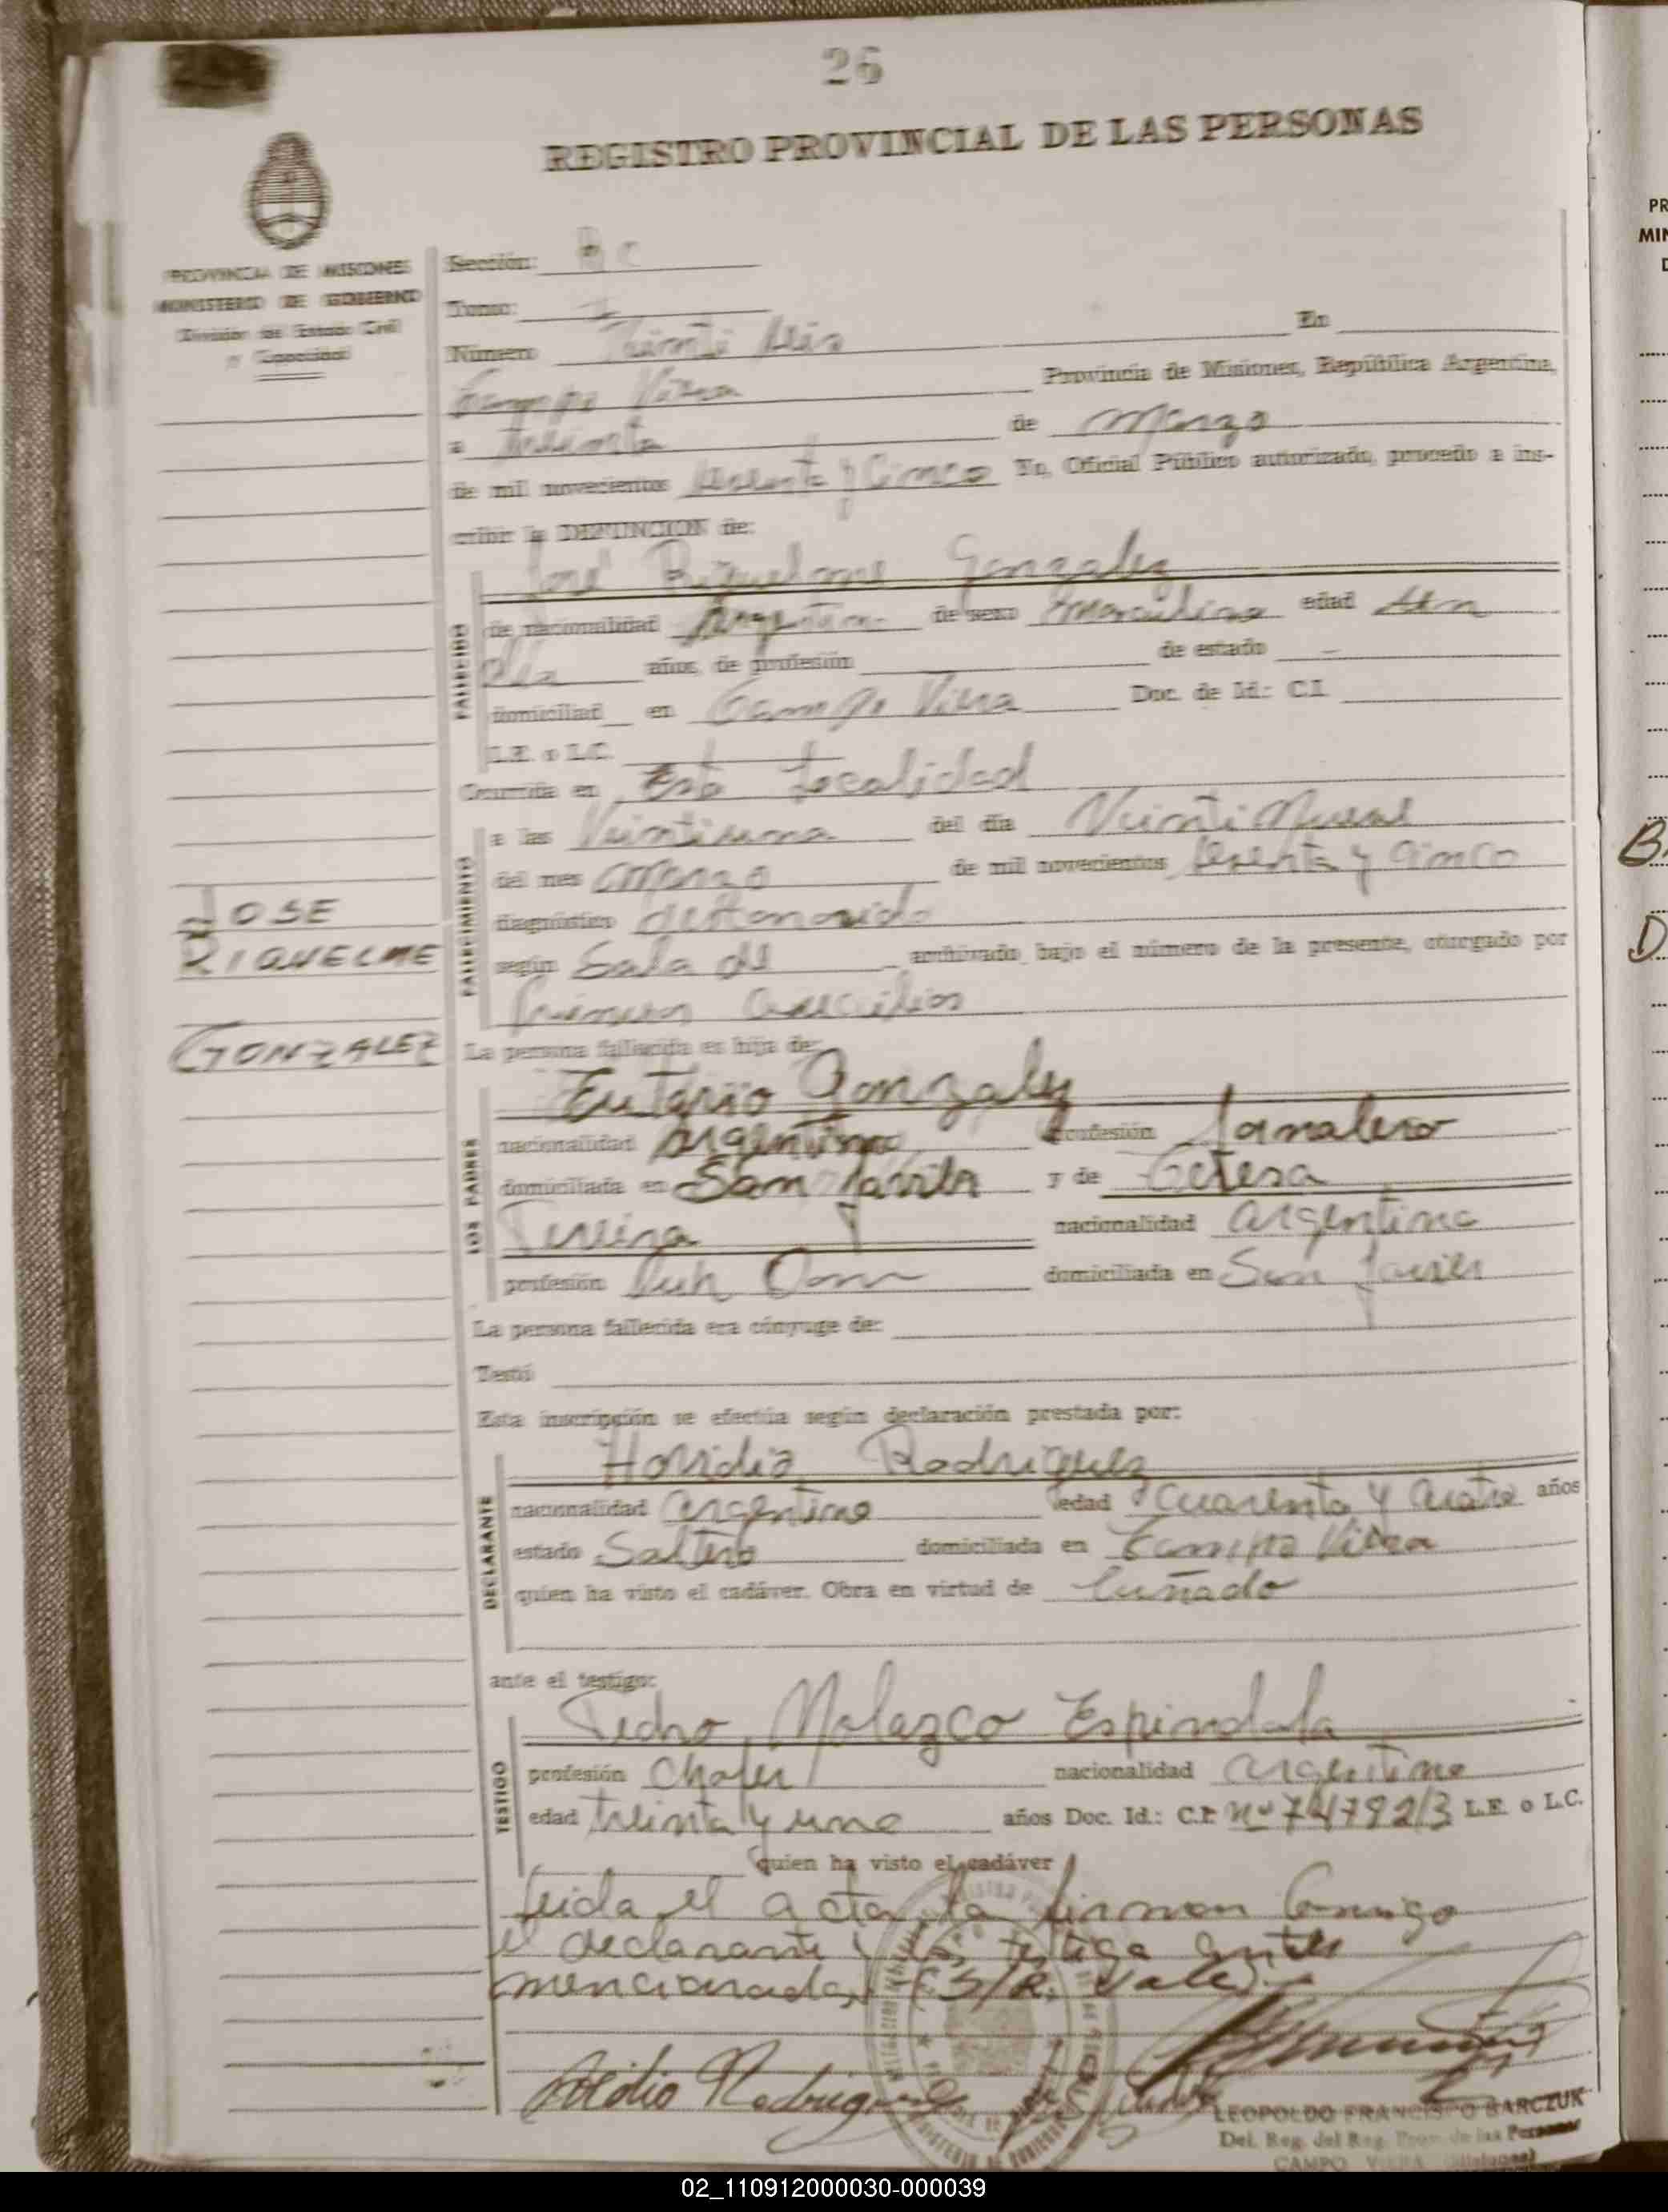 26
REGISTRO PROVINCIAL DE LAS PERSONAS
PROVINCIA DE MISIONES
MINISTERIO DE GOBIERNO
División de Estado Civil
y Capacidad
Sección:
Tomo: I
Número Veinti Seis En
Campo Viera Provincia de Misiones, República Argentina,
a treinta de Marzo
de mil novecientos sesenta y Cinco Yo, Oficial Público autorizado, procedo a ins-
cribir la DEFUNCION de:
José Riquelme Gonzalez
FALLECIDO
de nacionalidad Argentina de sexo masculino edad un
día años, de profesión de estado -
domiciliad en Campo Viera Doc. de Id.: C.I.
L.E. o L.C.
Ocurrida en Esta Localidad
FALLECIMIENTO
a las Veintiuna del día Veinti Nueve
del mes Marzo de mil novecientos sesenta y Cinco
diagnóstico
según Sala de archivado bajo el número de la presente, otorgado por
Primeros Auxilios
JOSE
RIQUELME
GONZALEZ
La persona fallecida es hija de:
LOS PADRES
Eutario Gonzalez
nacionalidad argentino profesión Jornalero
domiciliada en San Javier y de
nacionalidad argentina
profesión domiciliada en San Javier
La persona fallecida era cónyuge de:
Testó
Esta inscripción se efectúa según declaración prestada por:
DECLARANTE
Horidio Rodriguez
nacionalidad argentino edad cuarenta y cuatro años
estado Saltero domiciliada en Campo Viera
quien ha visto el cadáver. Obra en virtud de Cuñado
ante el testigo:
TESTIGO
Pedro Molazco Espindola
profesión Chofer nacionalidad argentino
edad treinta y uno años Doc. Id.: C.I. nº 7479213 L.E. o L.C.
quien ha visto el cadáver
Leida el acta, la firman Conmigo
el declarante y testigo antes
mencionados (S/R. Vale).-
Rodriguez
LEOPOLDO FRANCISCO BARCZUK
Del. Reg. del Reg. Prov. de las Personas
CAMPO VIERA (Misiones)
PR
MIN
D
B
D
02_110912000030-000039